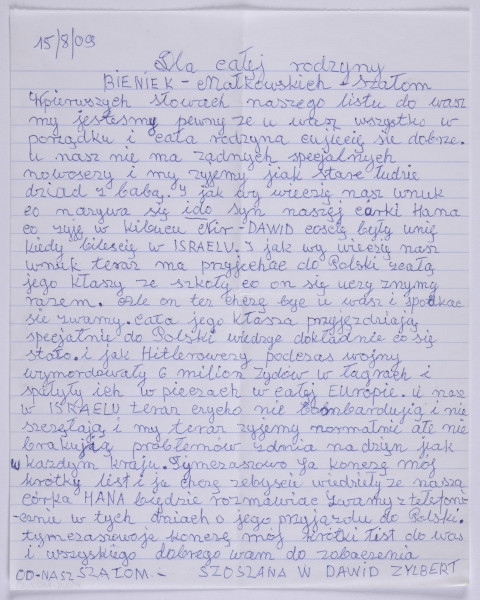 15/8/09
Dla całej rodzyny
BIENIEK - Małkowskich - Szałom
Wpierwszych słowach naszego listu do wasz
my jesteśmy pewny ze u wasz wszystko w
porządku i cała rodzyna cujiecię sie dobrze.
U nasz nie ma ządnych specjalnych
nowosery i my zyjemy jiak stare ludzie
dziad z babą. I jak wy wiecię nasz wnuk
co nazywa się ido syn naszej córki Hana
co zyję w kibucu Nir-DAWID cościę były unię
kiedy biliescię w ISRAELU. I jak wy wiecię nasz
wnuk teraz ma przyjechac do Polski zcałą
jego kłaszy ze szkoły co on się uczy znymy
razem. Ale on tez chcę byc u wasz i spotkac
sie zwamy. cała jego kłasza przyjezdziają
specjalnie do Polski wiedzec dokładnie co się
stało. i jak Hitlerowcy podczas wojny
wymordowały 6 milion Zydów w łagrach i
spałyły ich w pieczach w całej EUropie. U nasz
w ISRAELU teraz cycho nie bombardują i nie
szczełają i my teraz zyjemy normalnie ale nie
brakują problemów zdnia na dzien jak
w kazdym kraju. Tymczaszowo Ja konczę mój
krótky list i ja chcę zebyscię wiedziely ze nasza
córka HANA biędzie rozmawiac zwamy z telefoni-
-cznie w tych dniach o jego przyjazdu do Polski.
tymczasiowoje konczę mój krótki list do was
i wszyskiego dobrego wam do zobaczenia
OD-NASZ SZAŁOM - SZOSZANA W DAWID ZYLBERT